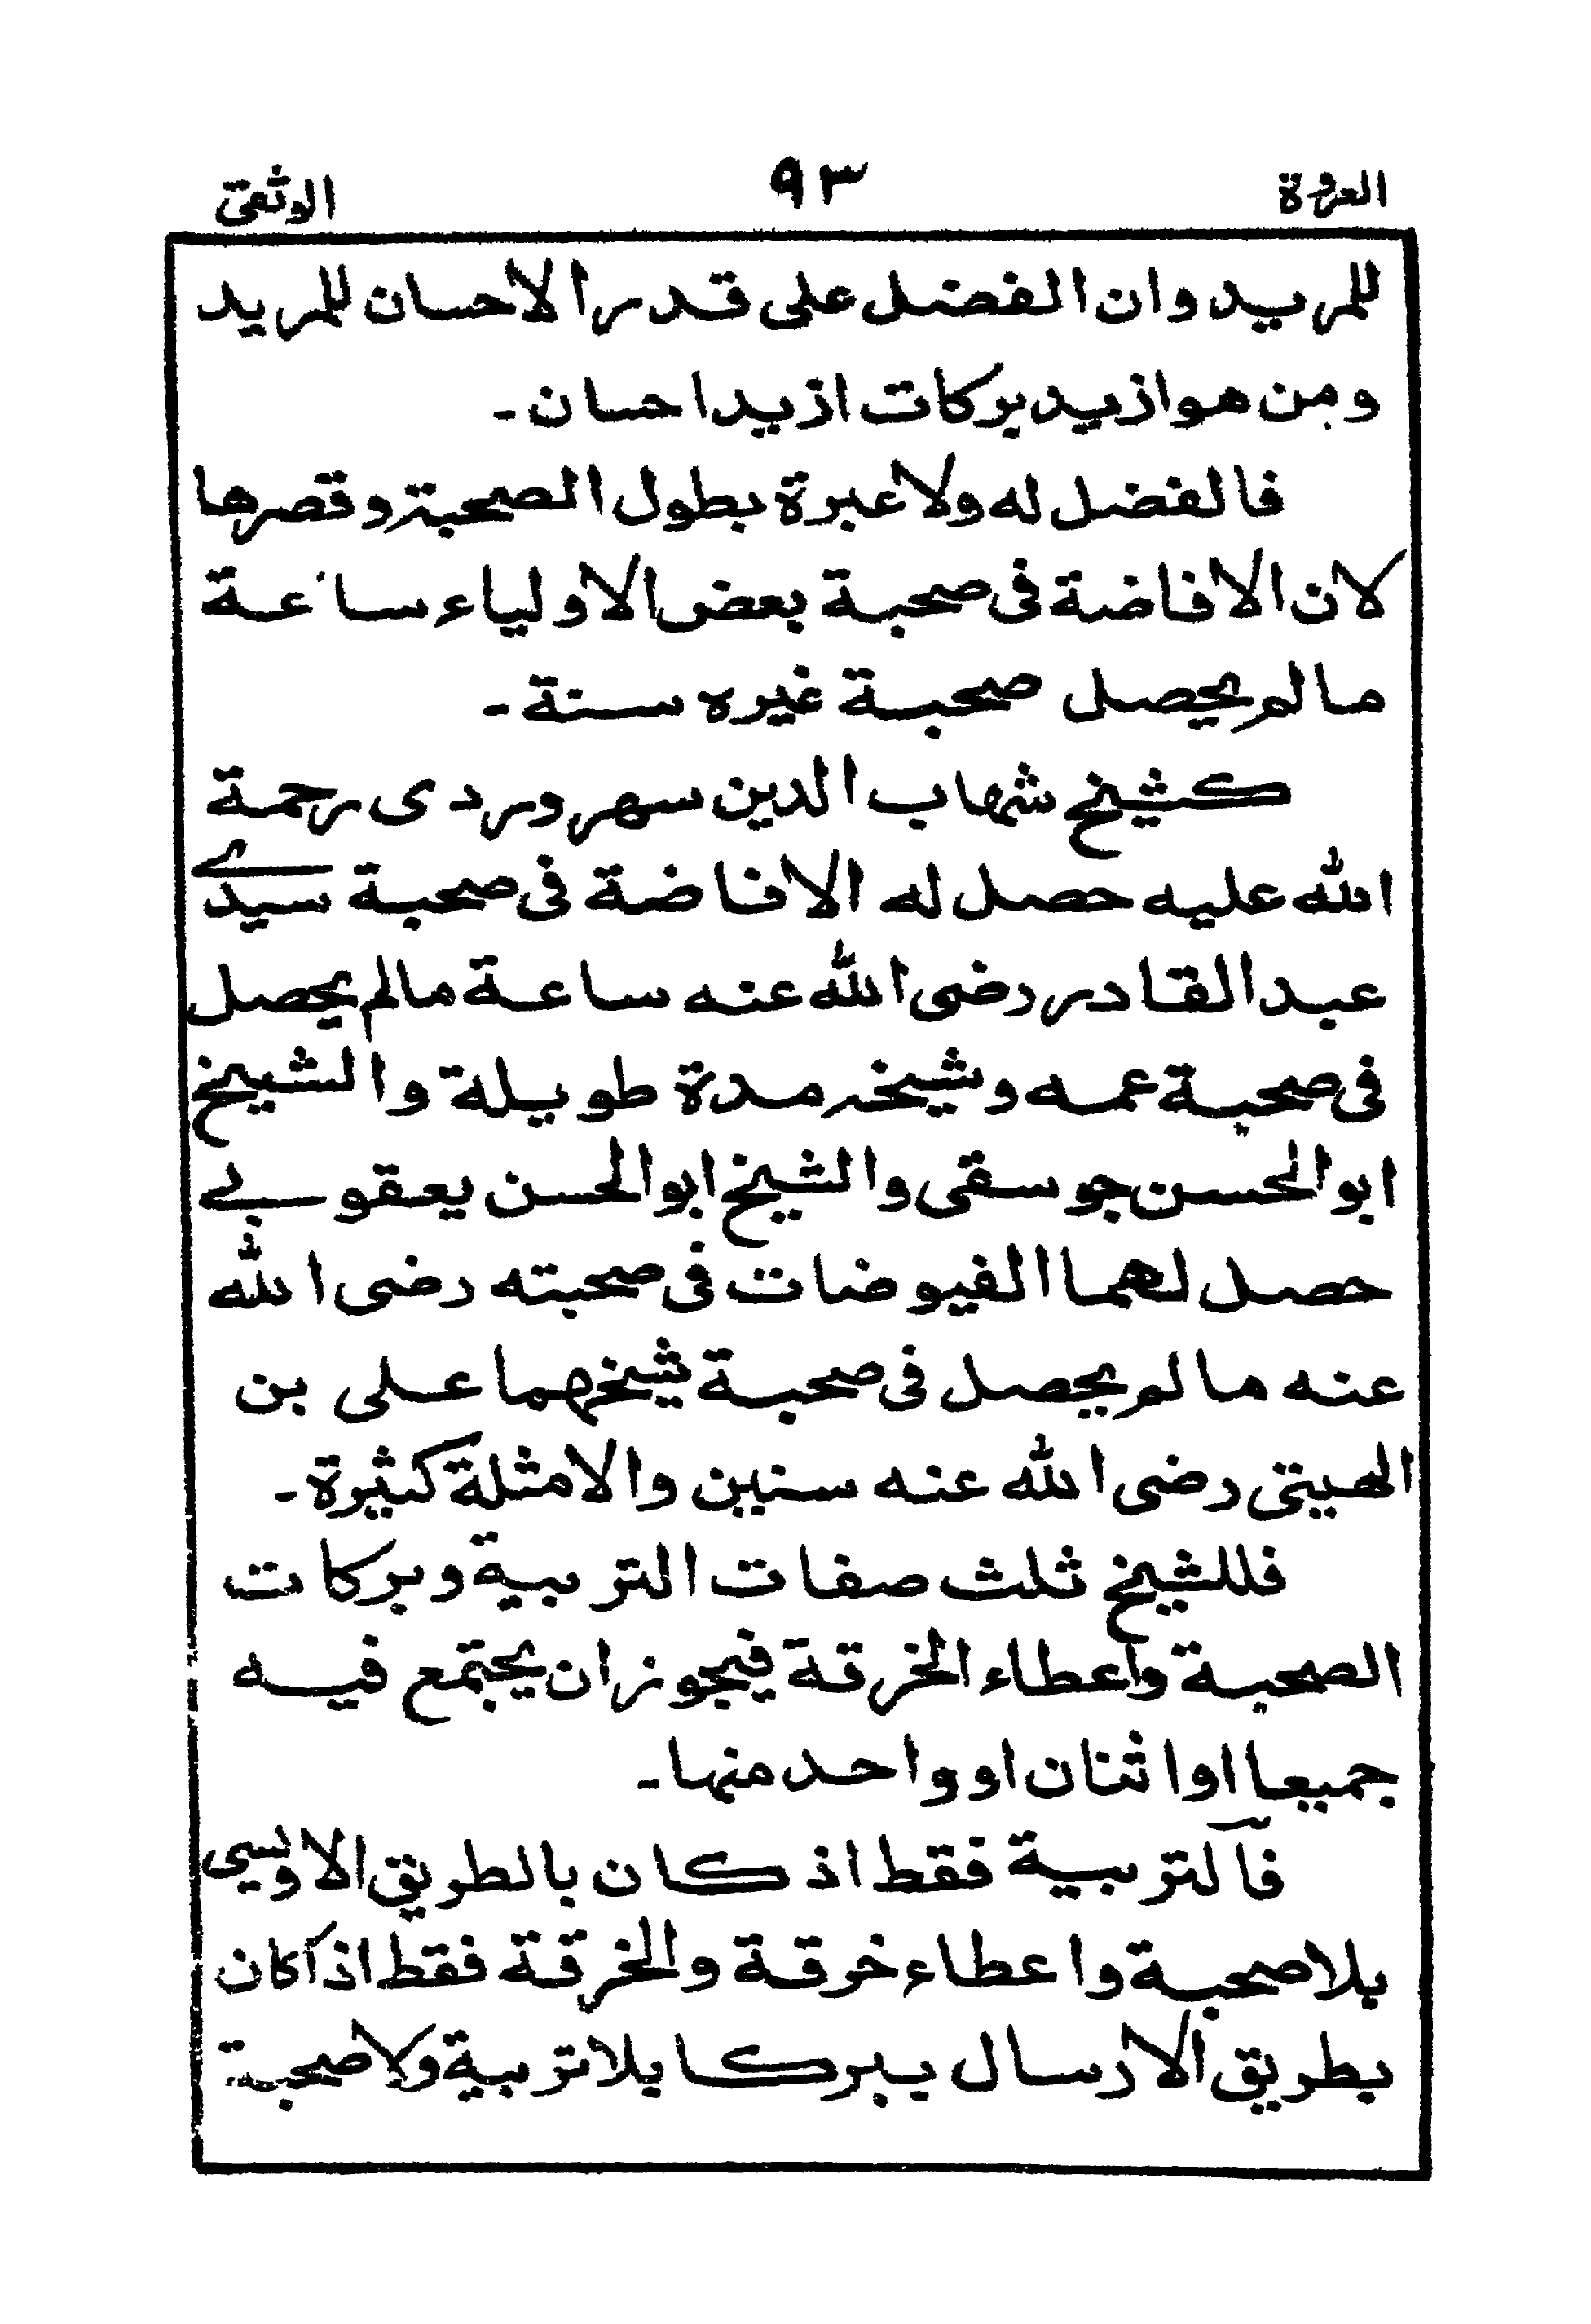 العروة ٩٣ الوثقى
للمريد وان الفضل على قدر الاحسان للمريد
ومن هو ازيد بركات ازيد احسان۔
فالفضل له ولا عبرة بطول الصحبة وقصرها
لان الافاضة فى صحبة بعض الاولياء ساعة
مالم يحصل صحبة غيره سنة۔
كشيخ شهاب الدين سهروردى رحمة
الله عليه حصل له الافاضة فى صحبة سيدى
عبد القادر رضى الله عنه ساعة مالم يحصل
فى صحبة عمه وشيخه مدة طويلة والشيخ
ابو الحسن جوسقى والشيخ ابو الحسن يعقوبى
حصل لهما الفيوضات فى صحبته رضى الله
عنه مالم يحصل فى صحبة شيخهما على بن
الهيتى رضى الله عنه سنين والامثلة كثيرة۔
فللشيخ ثلث صفات التربية وبركات
الصحبة واعطاء الخرقة فيجوز ان يجتمع فيه
جميعا او اثنان او واحد منها۔
فآلتربية فقط اذ كان بالطريق الاويسى
بلا صحبة واعطاء خرقة والخرقة فقط اذا كان
بطريق الارسال ببركا بلا تربية ولا صحبة